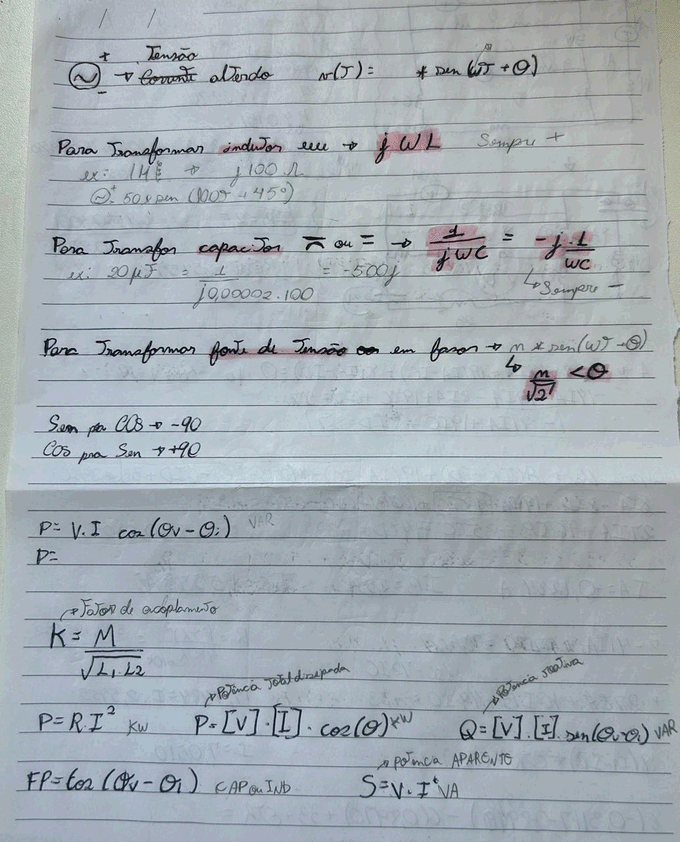 / /
+ Tensão
~ → Corrente alterdo v(T) = * sen (wT + θ)
-
Para Transformar indutor em → j W L Sempre +
ex: 1H → j 100 Ω
~ + 50 * sen (100T + 45°)
Para Transfor capacitor ou = → 1/jWC = -j . 1/WC
ex: 20μF = 1/j0,00002.100 = -500j
↳ Sempre -
Para Transformar fonte de Tensão em fasor → m * sen(wT + θ)
↳ m/√2 <θ
Sem pra COS → -90
COS pra Sen → +90
P = V.I cos(θv - θi) VAR
P=
→ Fator de acoplamento
K = M/√L1.L2
→ Potência Total dissipada → Potência reativa
P = R.I² KW P = [V].[I]. cos(θ) KW Q = [V].[I]. sen(θv-θi) VAR
→ potência APARENTE
FP = Cos (θv - θi) CAP ou IND S = V.I* VA